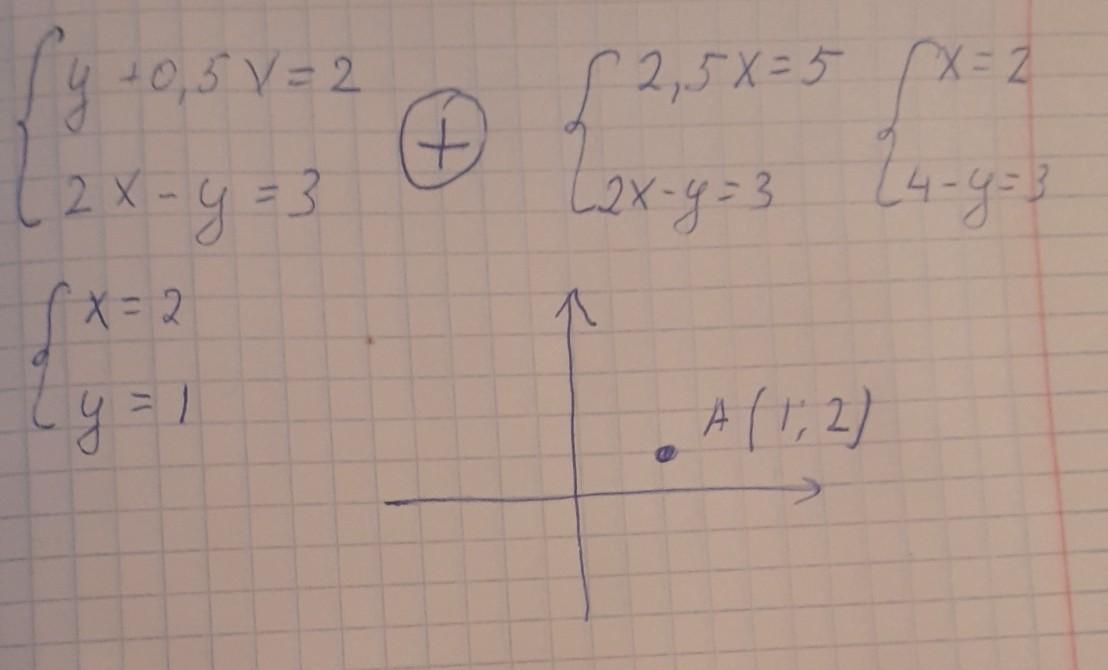 y + 0,5x = 2
2x - y = 3
+
2,5x = 5
2x - y = 3
x = 2
4 - y = 3
x = 2
y = 1
A (1; 2)